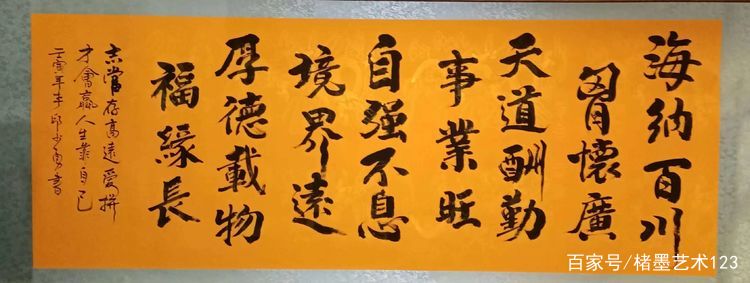 海纳百川
胷懷廣
天道酬勤
事業旺
自强不息
境界遠
厚德載物
福緣長
志當存高遠爱拼
才會贏人生靠自己
壬寅年
百家号/楮墨艺术123